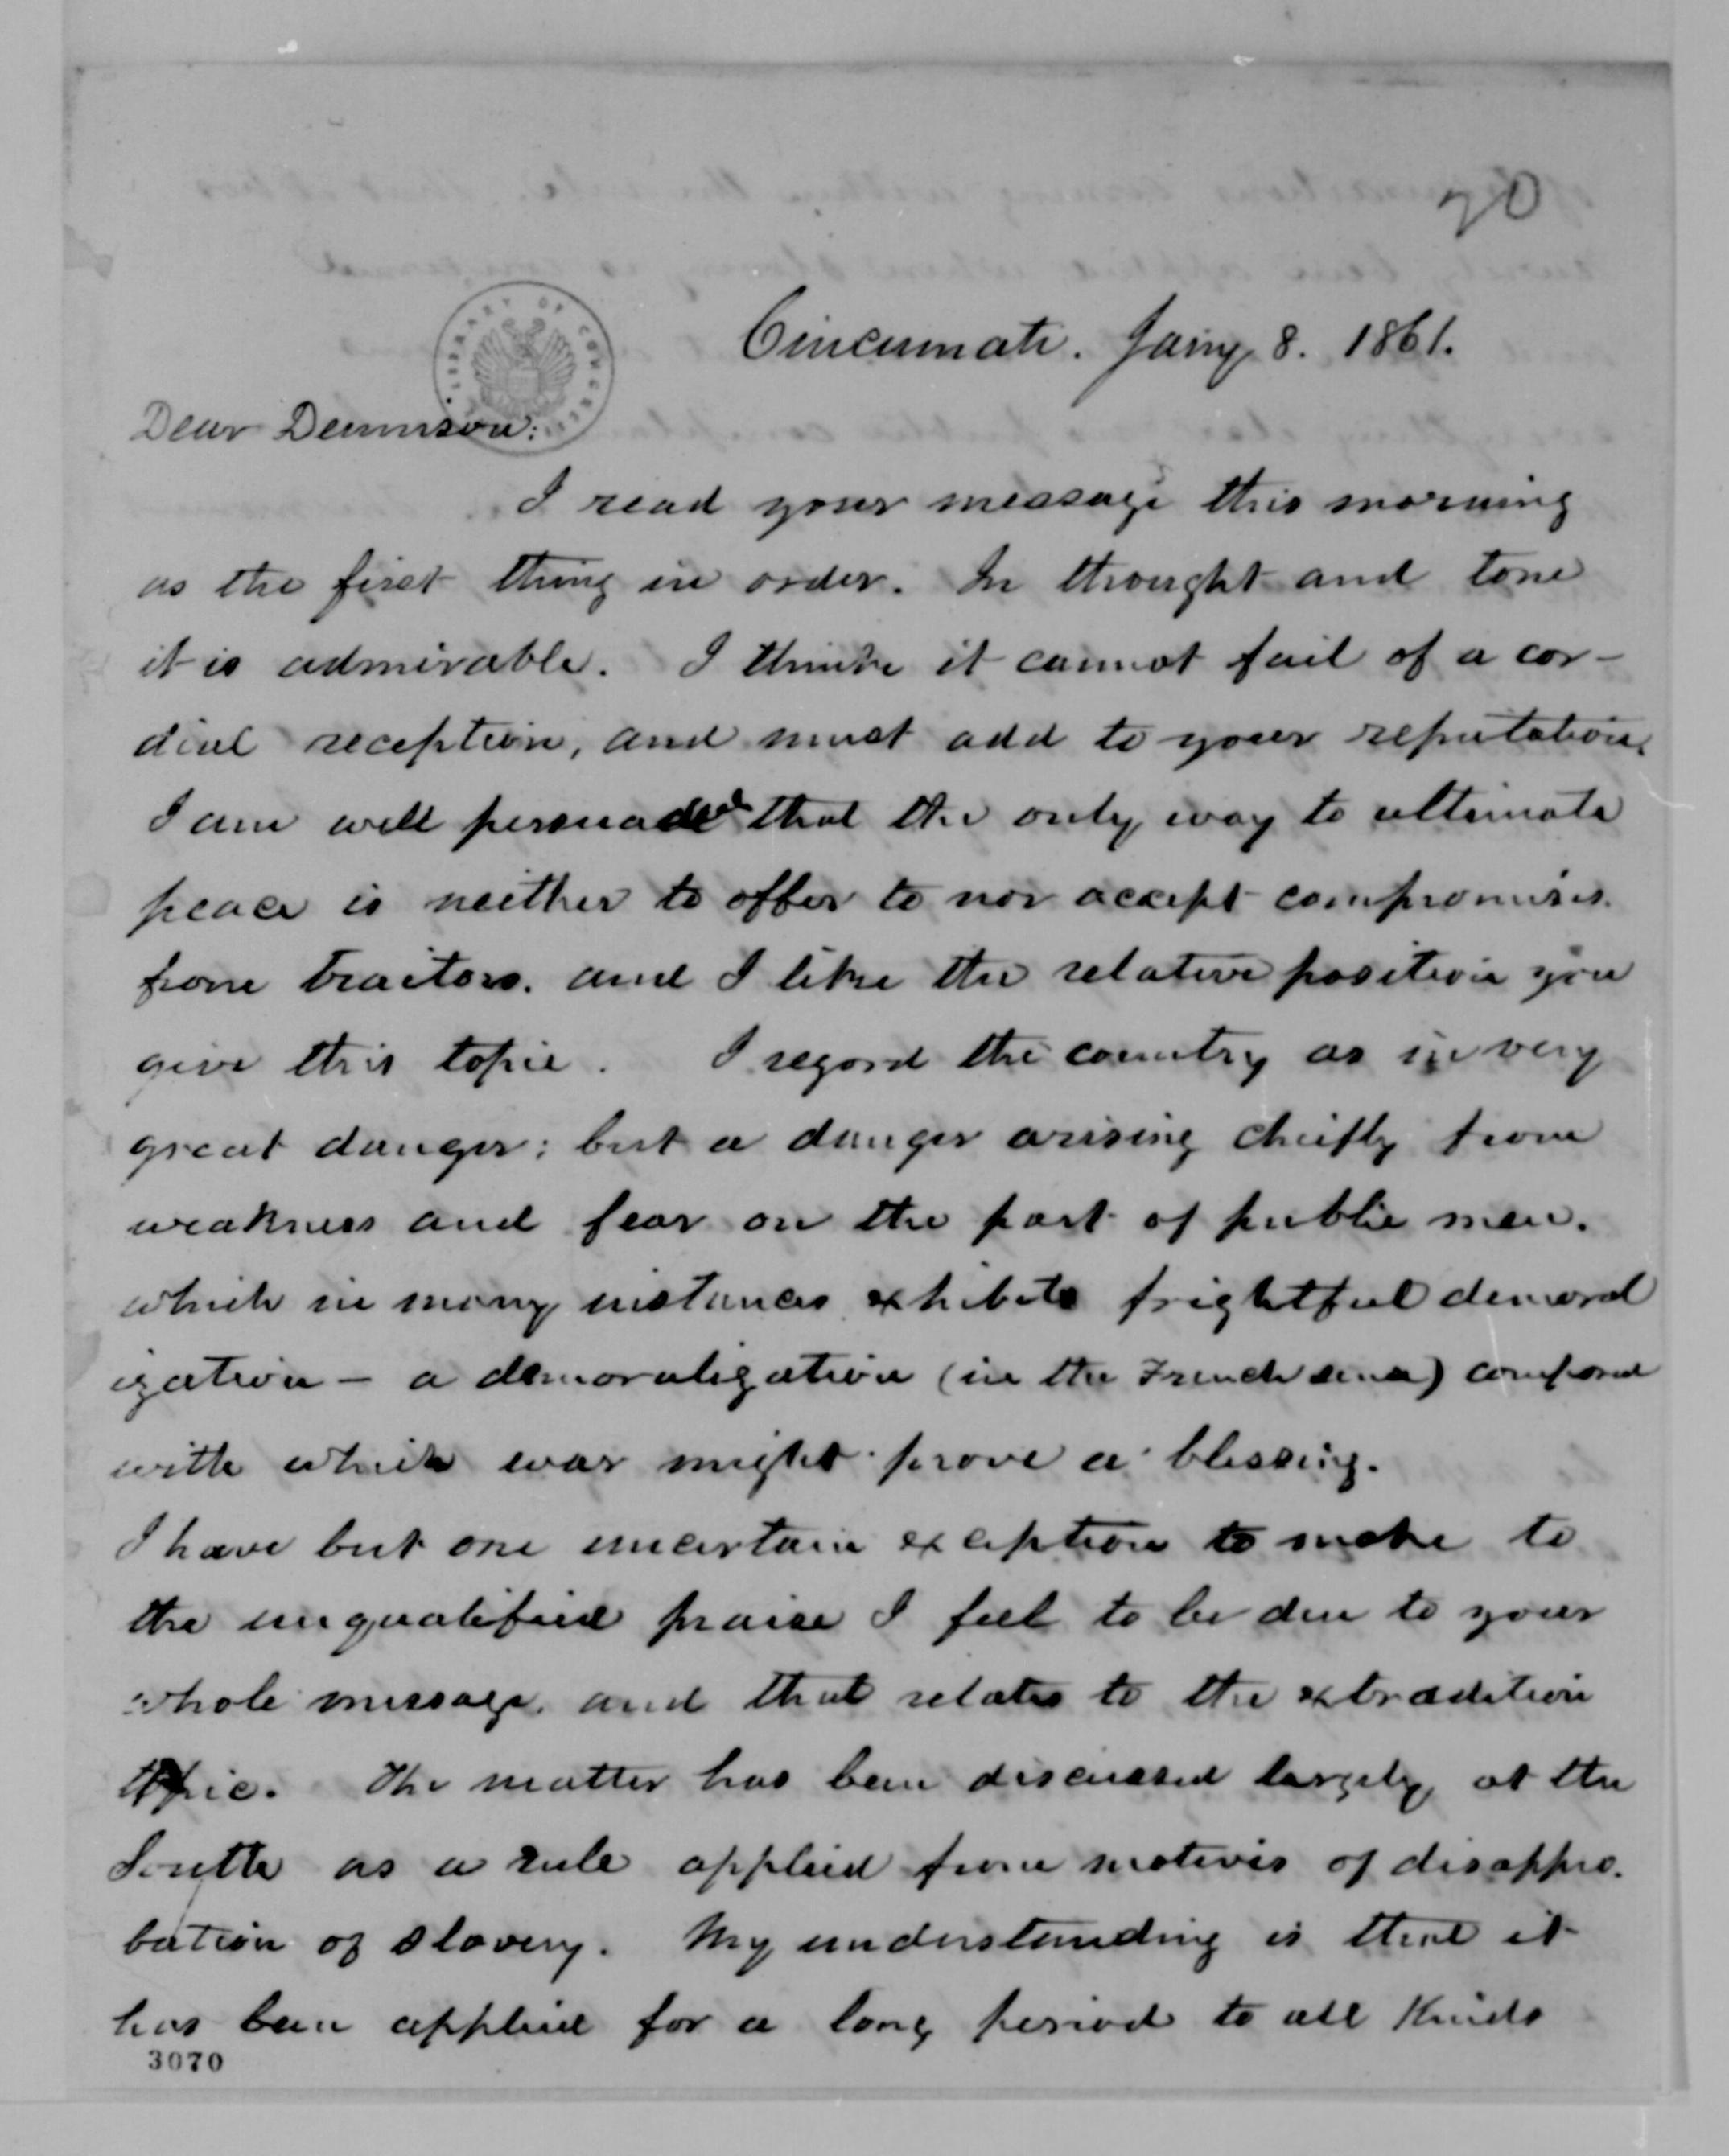 70
LIBRARY OF CONGRESS
Cincinnati. Jany 8. 1861.
Dear Dennison:
I read your message this morning
as the first thing in order. In thought and tone
it is admirable. I think it cannot fail of a cor-
dial reception, and must add to your reputation.
I am well persuaded that the only way to ultimate
peace is neither to offer to nor accept compromises
from traitors. and I like the relative position you
give this topic. I regard the country as in very
great danger; but a danger arising chiefly from
weakness and fear on the part of public men.
which in many instances exhibits frightful demoral
ization - a demoralization (in the French sense) compared
with which war might prove a blessing.
I have but one uncertain exception to make to
the unqualified praise I feel to be due to your
whole message. and that relates to the extradition
topic. The matter has been discussed largely at the
South as a rule applied from motives of disappro.
bation of slavery. My understanding is that it
has been applied for a long period to all kinds
3070